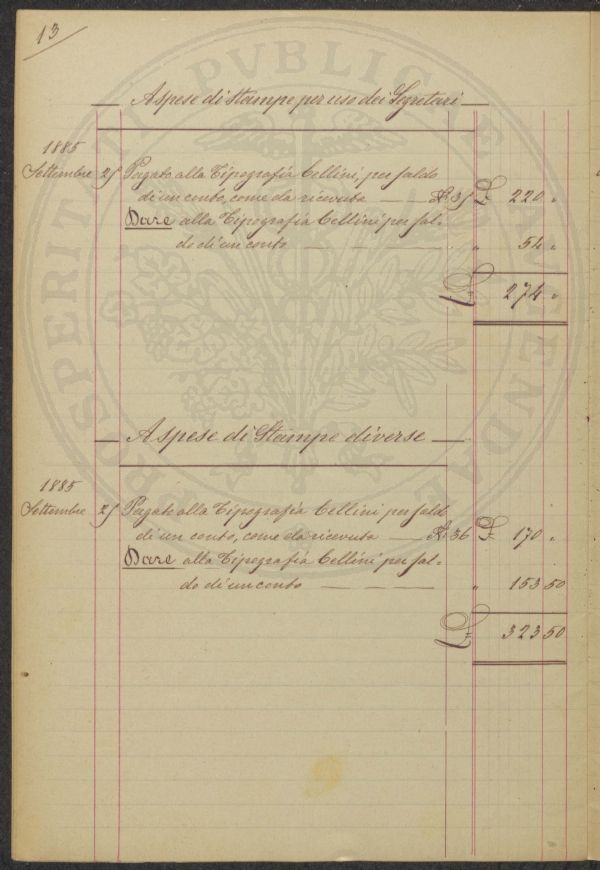 13
A spese di stampe per uso dei Segretari
1885
Settembre 25 Pagato alla Tipografia Cellini, per saldo
di un conto, come da ricevuta — — N. 35 £. 220 "
Dare alla Tipografia Cellini per sal=
do di un conto — — — — " 54 "
£= 274 "
A spese di Stampe diverse
1885
Settembre 25 Pagato alla Tipografia Cellini per saldo
di un conto, come da ricevuta — N. 36 £. 170 "
Dare alla Tipografia Cellini per sal=
do di un conto — — — — " 153 50
£= 323 50
PROSPERITATI PVBLICAE AVGENDAE